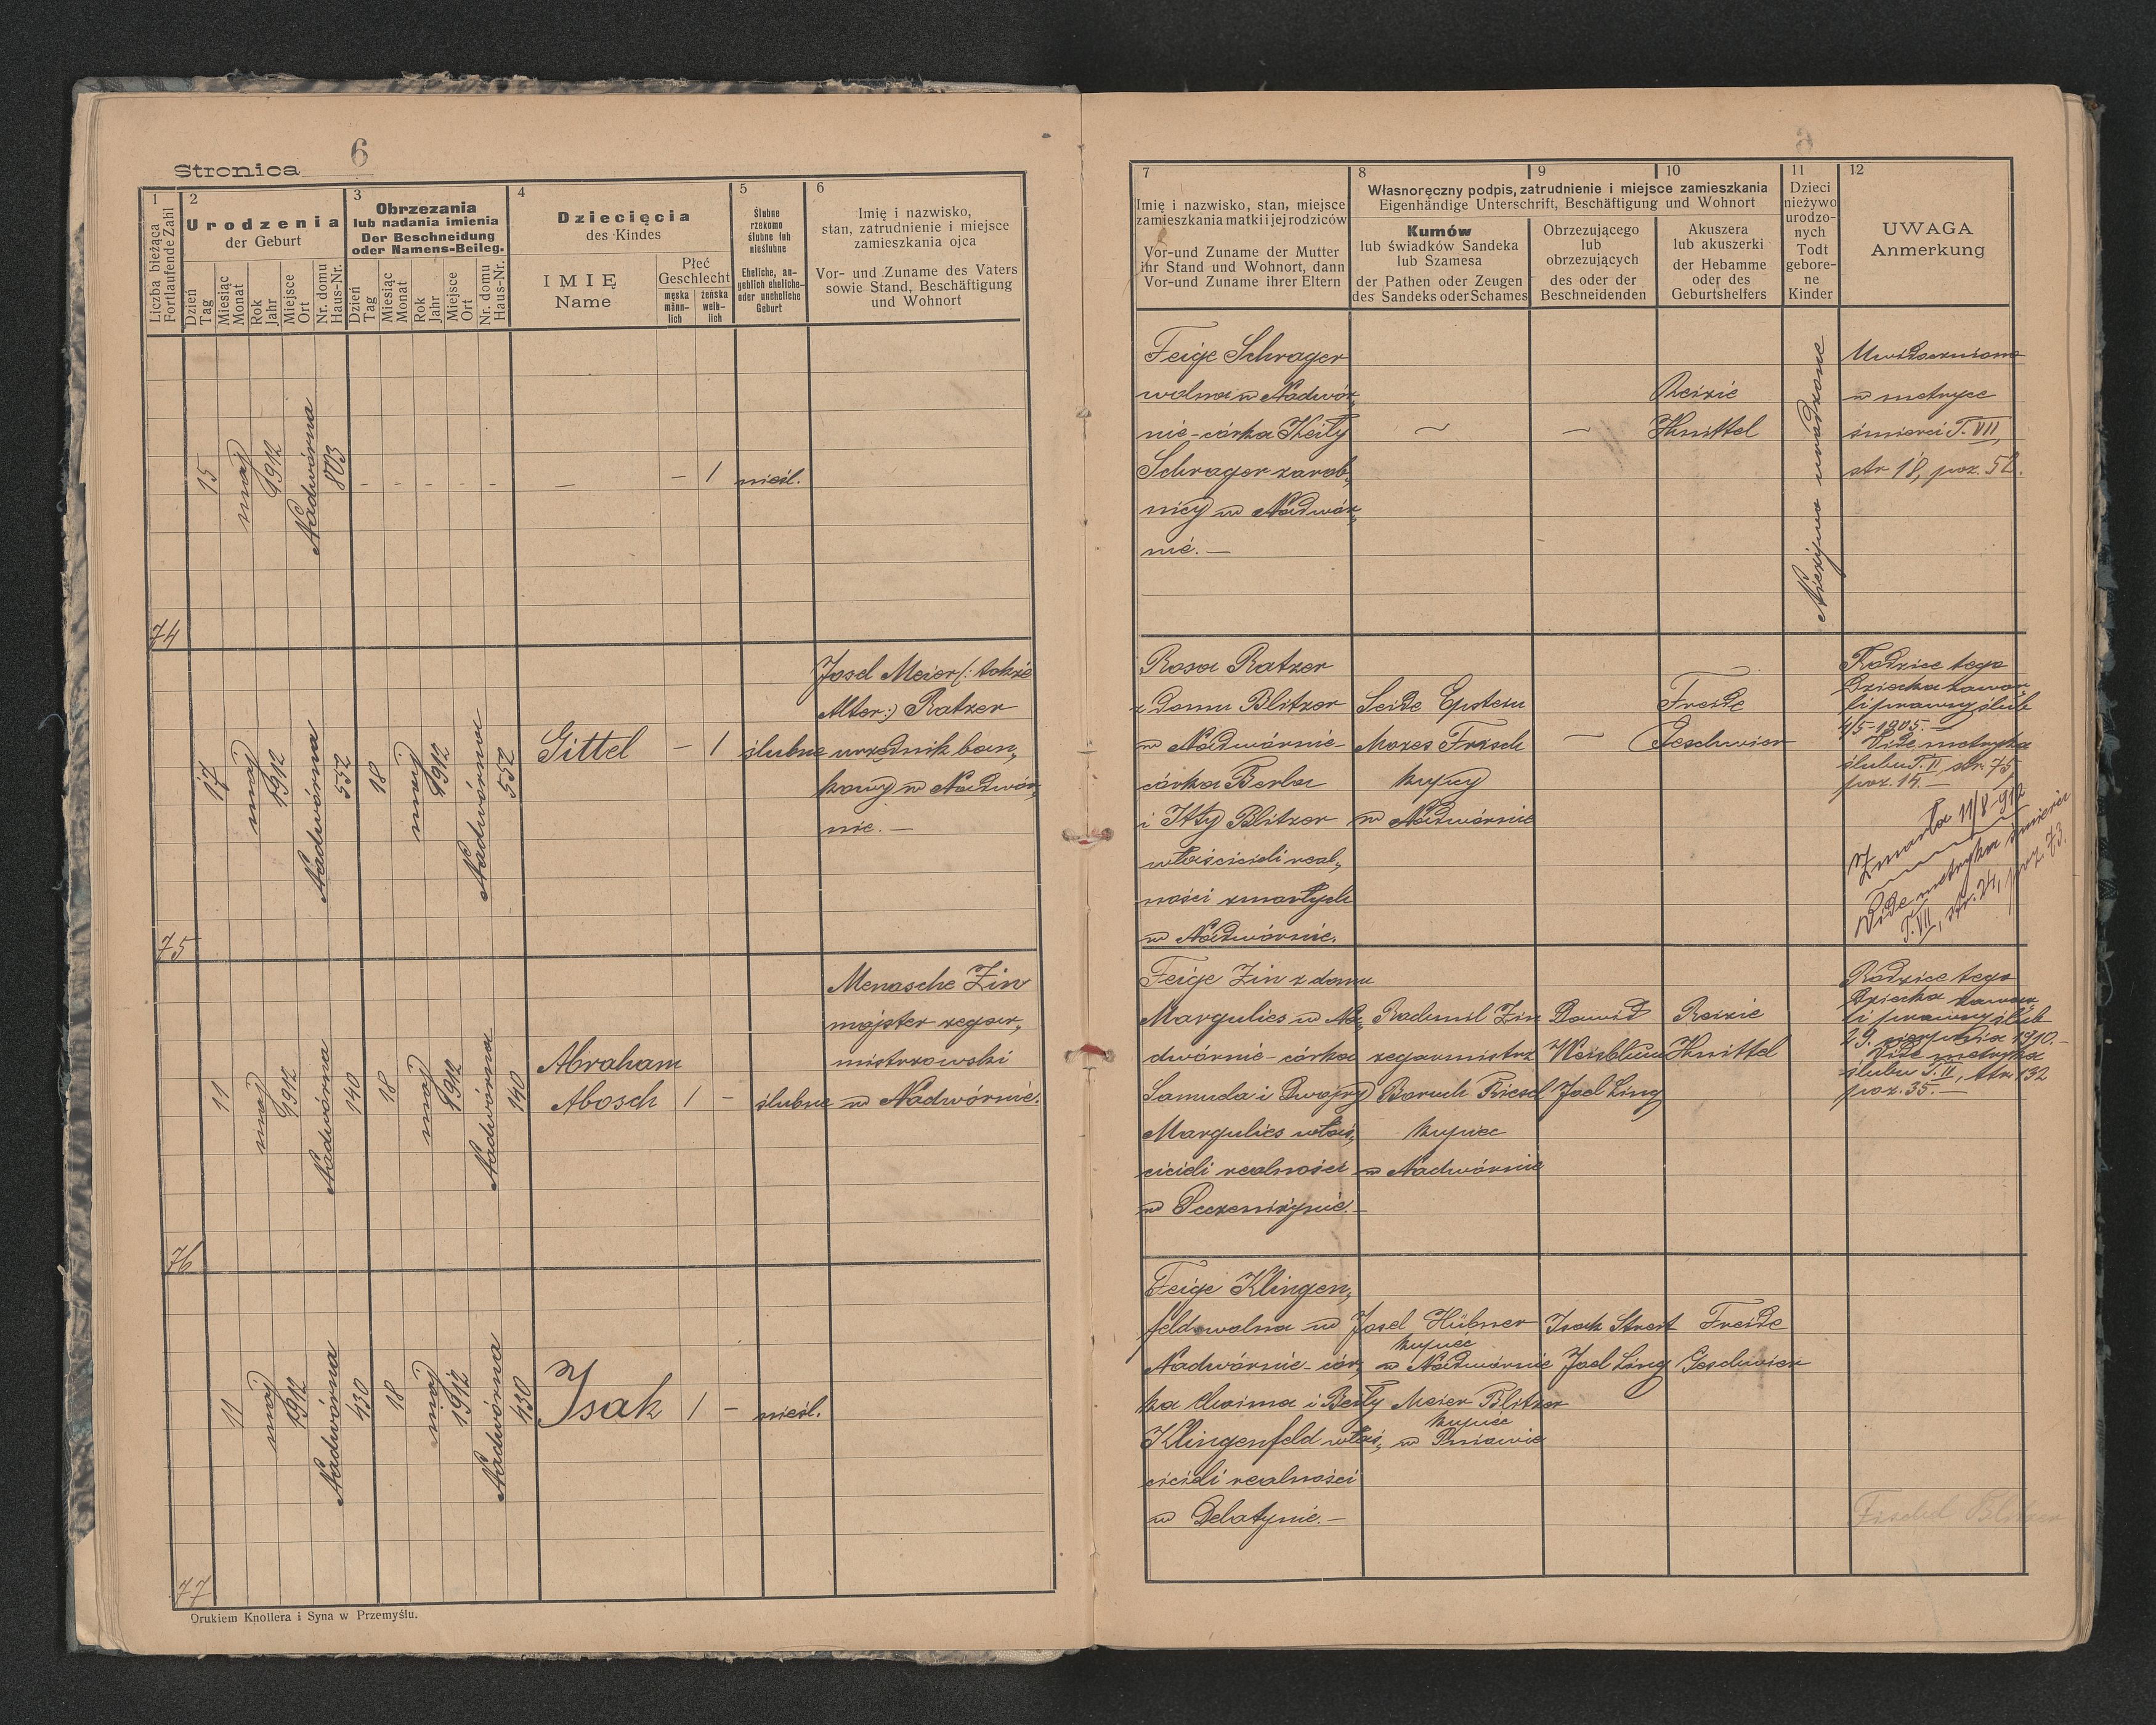 Stronica 6
1
Liczba bieżąca
Fortlaufende Zahl
2
Urodzenia
der Geburt
Dzień
Tag
Miesiąc
Monat
Rok
Jahr
Miejsce
Ort
Nr. domu
Haus-Nr.
3
Obrzezania
lub nadania imienia
Der Beschneidung
oder Namens-Beileg.
Dzień
Tag
Miesiąc
Monat
Rok
Jahr
Miejsce
Ort
Nr. domu
Haus-Nr.
4
Dziecięcia
des Kindes
IMIĘ
Name
Płeć
Geschlecht
męska
männ-
lich
żeńska
weib-
lich
5
Ślubne
rzekomo
ślubne lub
nieślubne
Eheliche, an-
geblich eheliche-
oder uneheliche
Geburt
6
Imię i nazwisko,
stan, zatrudnienie i miejsce
zamieszkania ojca
Vor- und Zuname des Vaters
sowie Stand, Beschäftigung
und Wohnort
7
Imię i nazwisko, stan, miejsce
zamieszkania matki i jej rodziców
Vor-und Zuname der Mutter
ihr Stand und Wohnort, dann
Vor-und Zuname ihrer Eltern
8
9
10
Własnoręczny podpis, zatrudnienie i miejsce zamieszkania
Eigenhändige Unterschrift, Beschäftigung und Wohnort
Kumów
lub świadków Sandeka
lub Szamesa
der Pathen oder Zeugen
des Sandeks oder Schames
Obrzezującego
lub
obrzezujących
des oder der
Beschneidenden
Akuszera
lub akuszerki
der Hebamme
oder des
Geburtshelfers
11
Dzieci
nieżywo
urodzo-
nych
Todt
gebore-
ne
Kinder
12
UWAGA
Anmerkung
74
15
maj
1912
Nadwórna
803
- - - - -
—
- 1
nieśl.
Feige Schrager
wolna w Nadwór„
nie - córka Keily
Schrager zarob„
nicy w Nadwór„
nie. —
~
~
Reizie
Knittel
Nieżywo urodzone
Uwidoczniono
w metryce
śmierci T. VII,
str 18, poz. 52.
75
17
maj
1912
Nadwórna
552
18
maj
1912
Nadwórna
552
Gittel
- 1
ślubne
Josel Meier (: także
Alter :) Ratzer
urzędnik ban„
kowy w Nadwór„
nie. —
Rosa Ratzer
z domu Blitzer
w Nadwórnie -
córka Berla
i Itty Blitzer
właścicieli real„
ności zmarłych
w Nadwórnie.
Seide Epstein
Mozes Frisch
kupcy
w Nadwórnie
~
Freide
Geschwier
Rodzice tego
dziecka zawar
li prawny ślub
4/5 - 1905. —
Vide metryka
ślubu T. II, str. 75,
poz. 14. —
Zmarła 11/8 - 912
Vide metryka śmierci
T. VII, str. 24, poz. 73.
76
11
maj
1912
Nadwórna
140
18
maj
1912
Nadwórna
140
Abraham
Abosch
1 -
ślubne
Menasche Zin
majster zegar„
mistrzowski
w Nadwórnie.
Feige Zin z domu
Margulies w Na„
dwórnie - córka
Samuda i Dwojry
Margulies właś„
cicieli realności
w Peczeniżynie. —
Rachmil Zin
zegarmistrz
Baruch Riesel
kupiec
w Nadwórnie
Dawid
Weisblum
Joel Ling
Reizie
Knittel
Rodzice tego
dziecka zawar
li prawny ślub
29. sierpnia 1910. —
Vide metryka
ślubu T. II, str. 132
poz. 35. —
77
11
maj
1912
Nadwórna
430
18
maj
1912
Nadwórna
430
Isak
1 -
nieśl.
Feige Klingen„
feld wolna w
Nadwórnie - cór„
ka Chaima i Beily
Klingenfeld właś„
cicieli realności
w Delatynie. —
Josel Hübner
kupiec
w Nadwórnie
Meier Blitzer
kupiec
w Pniowie
Isak Streit
Joel Ling
Freide
Geschwier
Fischel Blitzer
Drukiem Knollera i Syna w Przemyślu.